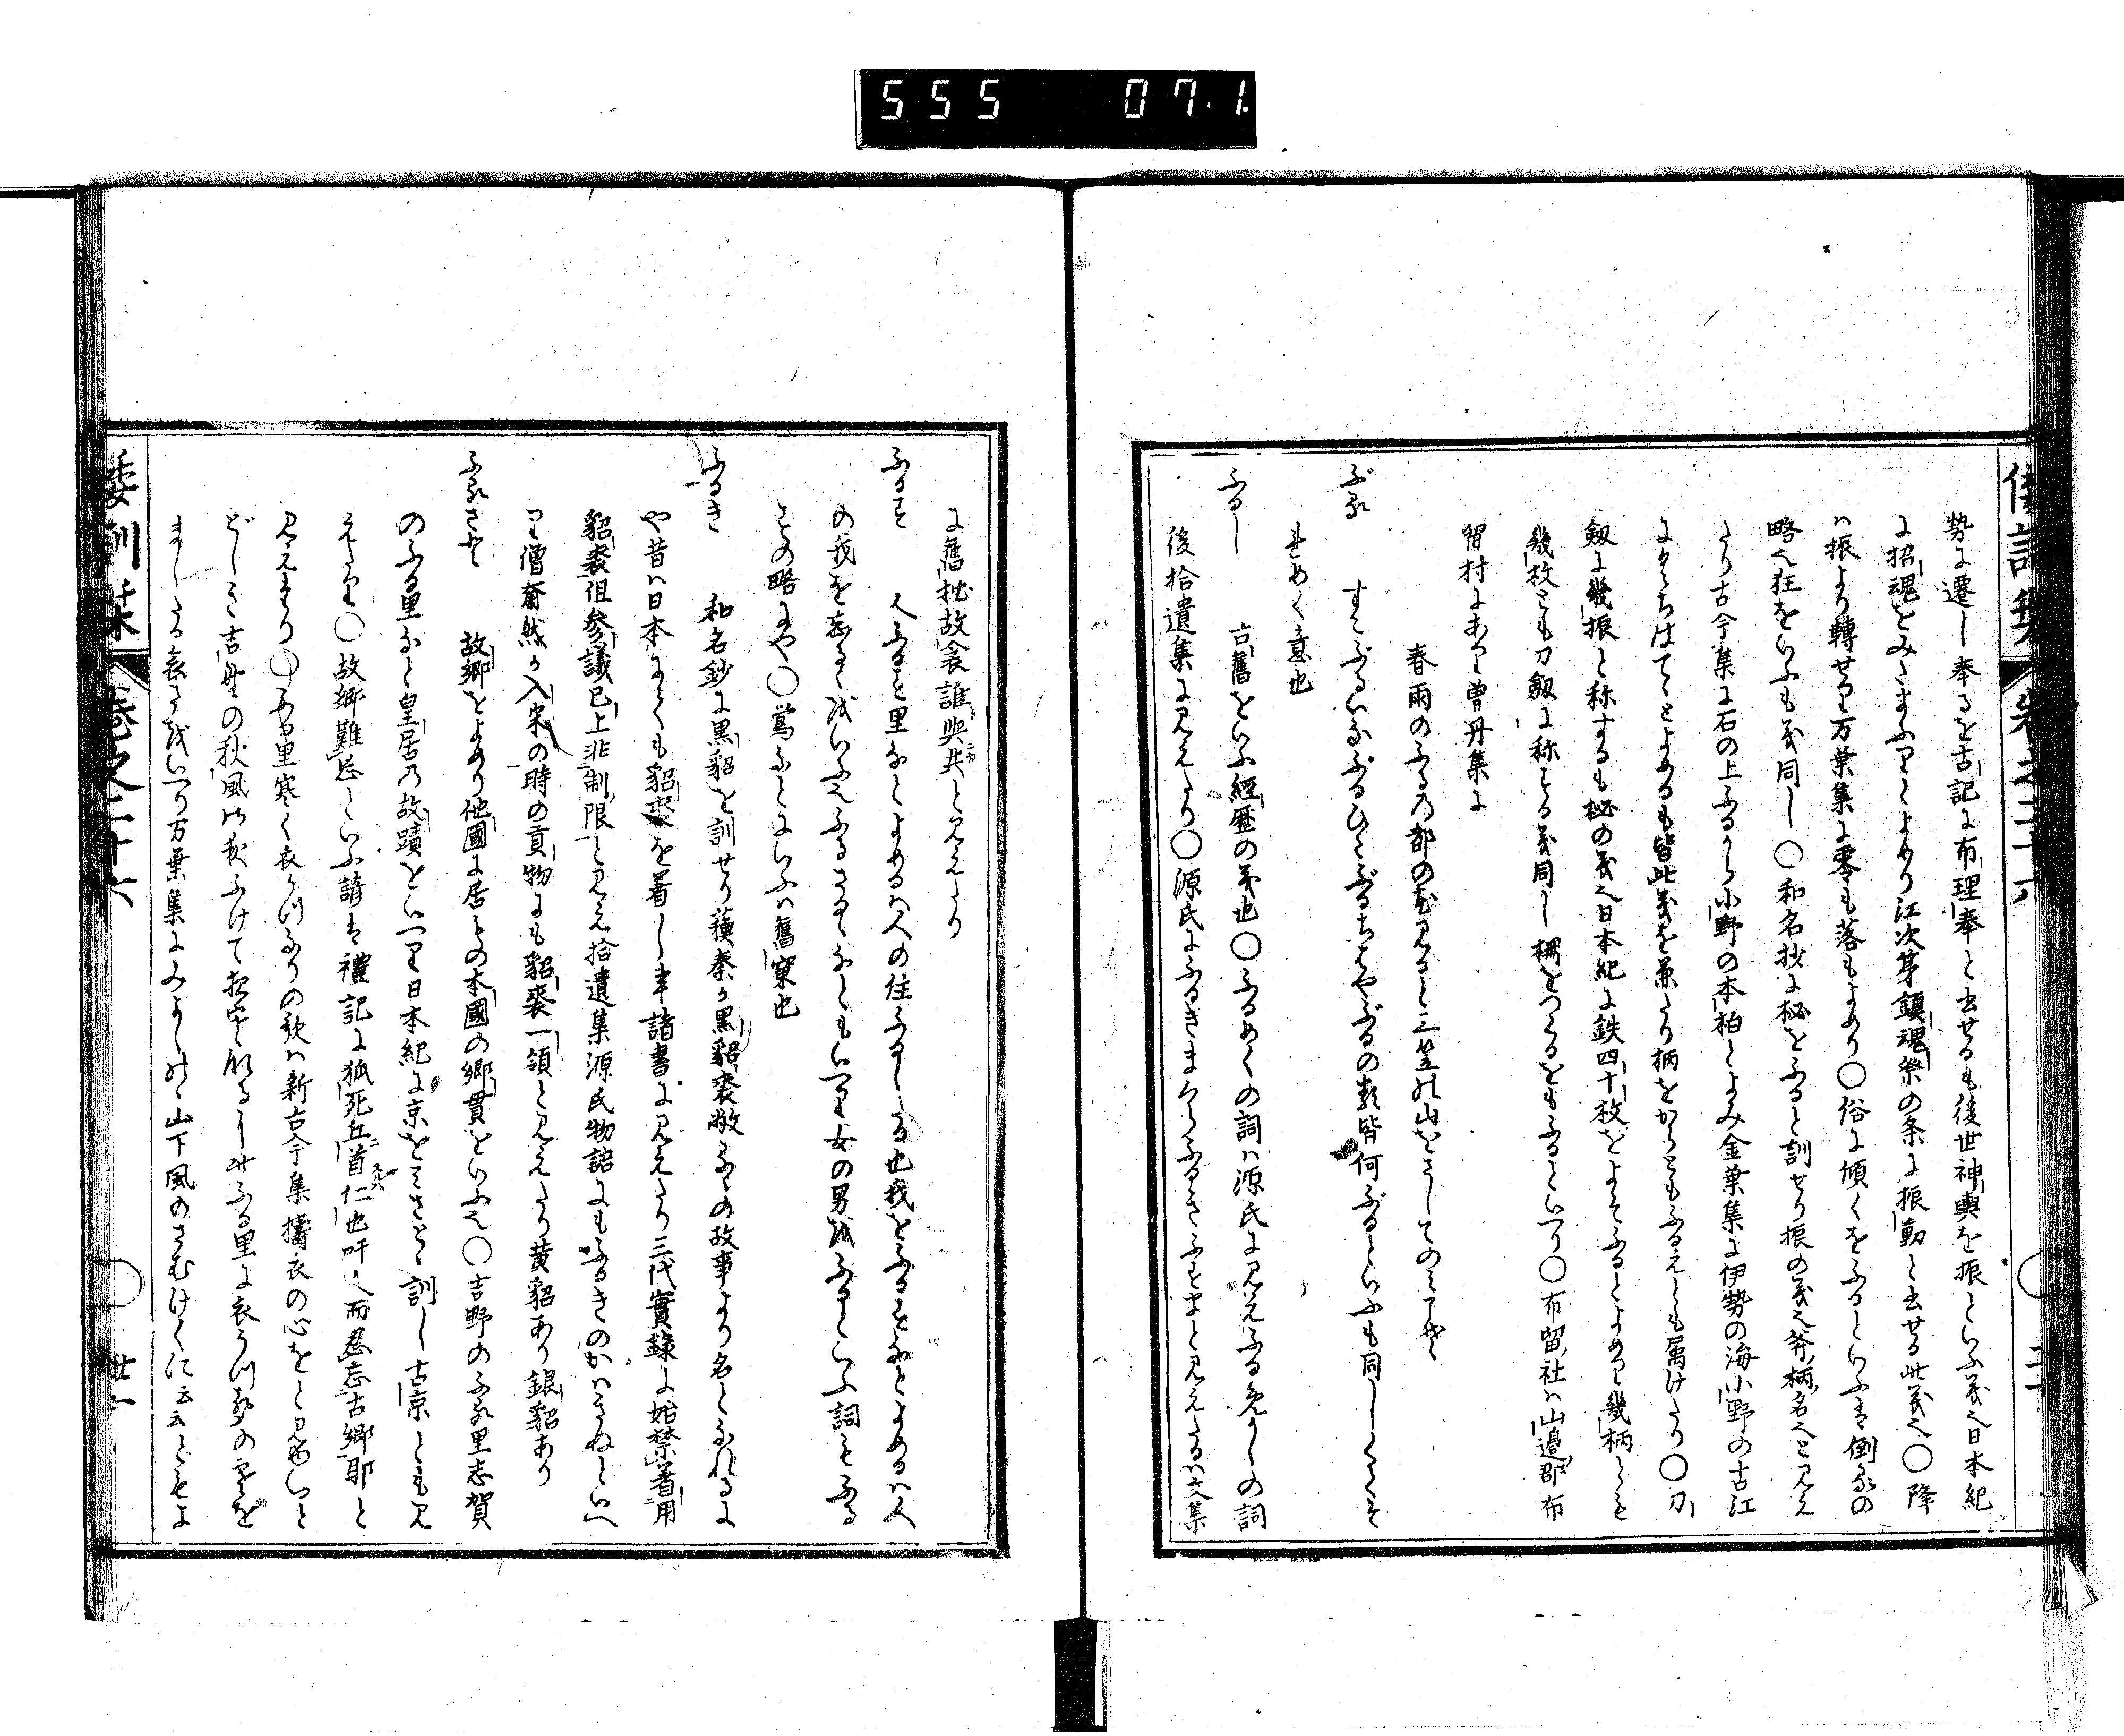 555 07.1
勢に遷し奉るを古記に布理奉と書せるも後世神輿を振といふ義也日本紀
に招魂をみたまふりとよめり江次第鎮魂祭の条に振動と書せる此義也○降
ハ振より轉せり万葉集に零も落もよめり○俗に傾くをふるといふは倒るの
略也狂をいふも義同し○和名抄に柲をふると訓せり振の義也斧柄名也と見え
たり古今集に石の上ふるから小野の本柏とよみ金葉集に伊勢の海小野の古江
にくちはてゝとよめるも皆此義を兼たり柄をからともふるえとも属けたり○刀
劔に幾振と称するも柲の義也日本紀に鉄四十枚をよそふるとよめり幾柄とも
幾枚とも刀劔に称する義同し 柵をつくるをもふるといへり○布留社ハ山邉郡布
留村にあり曽丹集に
春雨のふるの都の花見ると三笠の山をさしてのみ
ぶる すさぶるいなぶるひくぶるちはやぶるの類皆何ぶるといふも同しくくそ
めく意也
ふるし 古舊をいふ經歴の義也○ふるめくの詞ハ源氏に見えふるめかしの詞
後拾遺集に見えたり○源氏にふるきまくらふるきふすまと見えたるハ文集
に舊枕故衾誰與共と見えたり
ふるす 人ふるす里なとよめるハ人の住ふるしたる也我をふるすなとよめるハ人
の我を忘るゝ成いふ也ふるさるゝなともいへり女の男成ふるしといふ詞もふる
すの略にや○鴬ふすにいふハ舊窠也
ふるき 和名鈔に黒貂を訓せり蘓秦か黒貂裘敝るの故事より名となれるに
や昔ハ日本にても貂裘を着し事諸書に見えたり三代實録に始禁着用
貂裘但参議已上非制限と見え拾遺集源氏物語にもふるきのかハきぬといへ
り僧奝然か入宋の時の貢物にも貂裘一領と見えたり黄貂あり銀貂あり
ふるさと 故郷をよめり他國に居るの本國の郷貫をいふ也○吉野のふる里志賀
のふる里なと皇居の故蹟をいへり日本紀に京をみさとゝ訓し古京とも見
えたり○故郷難忘といふ諺は禮記に狐死丘首仁也吁人而忍忘古郷耶と
見えたり○ふる里寒く衣うつなりの歌ハ新古今集擣衣の心をと見
みよし吉野の秋風さ夜ふけて ふる里に衣うつ
ましたる 成いへり万葉集にみよしのゝ山下風のさむけくに云云
倭訓栞 巻之二十六 廿一